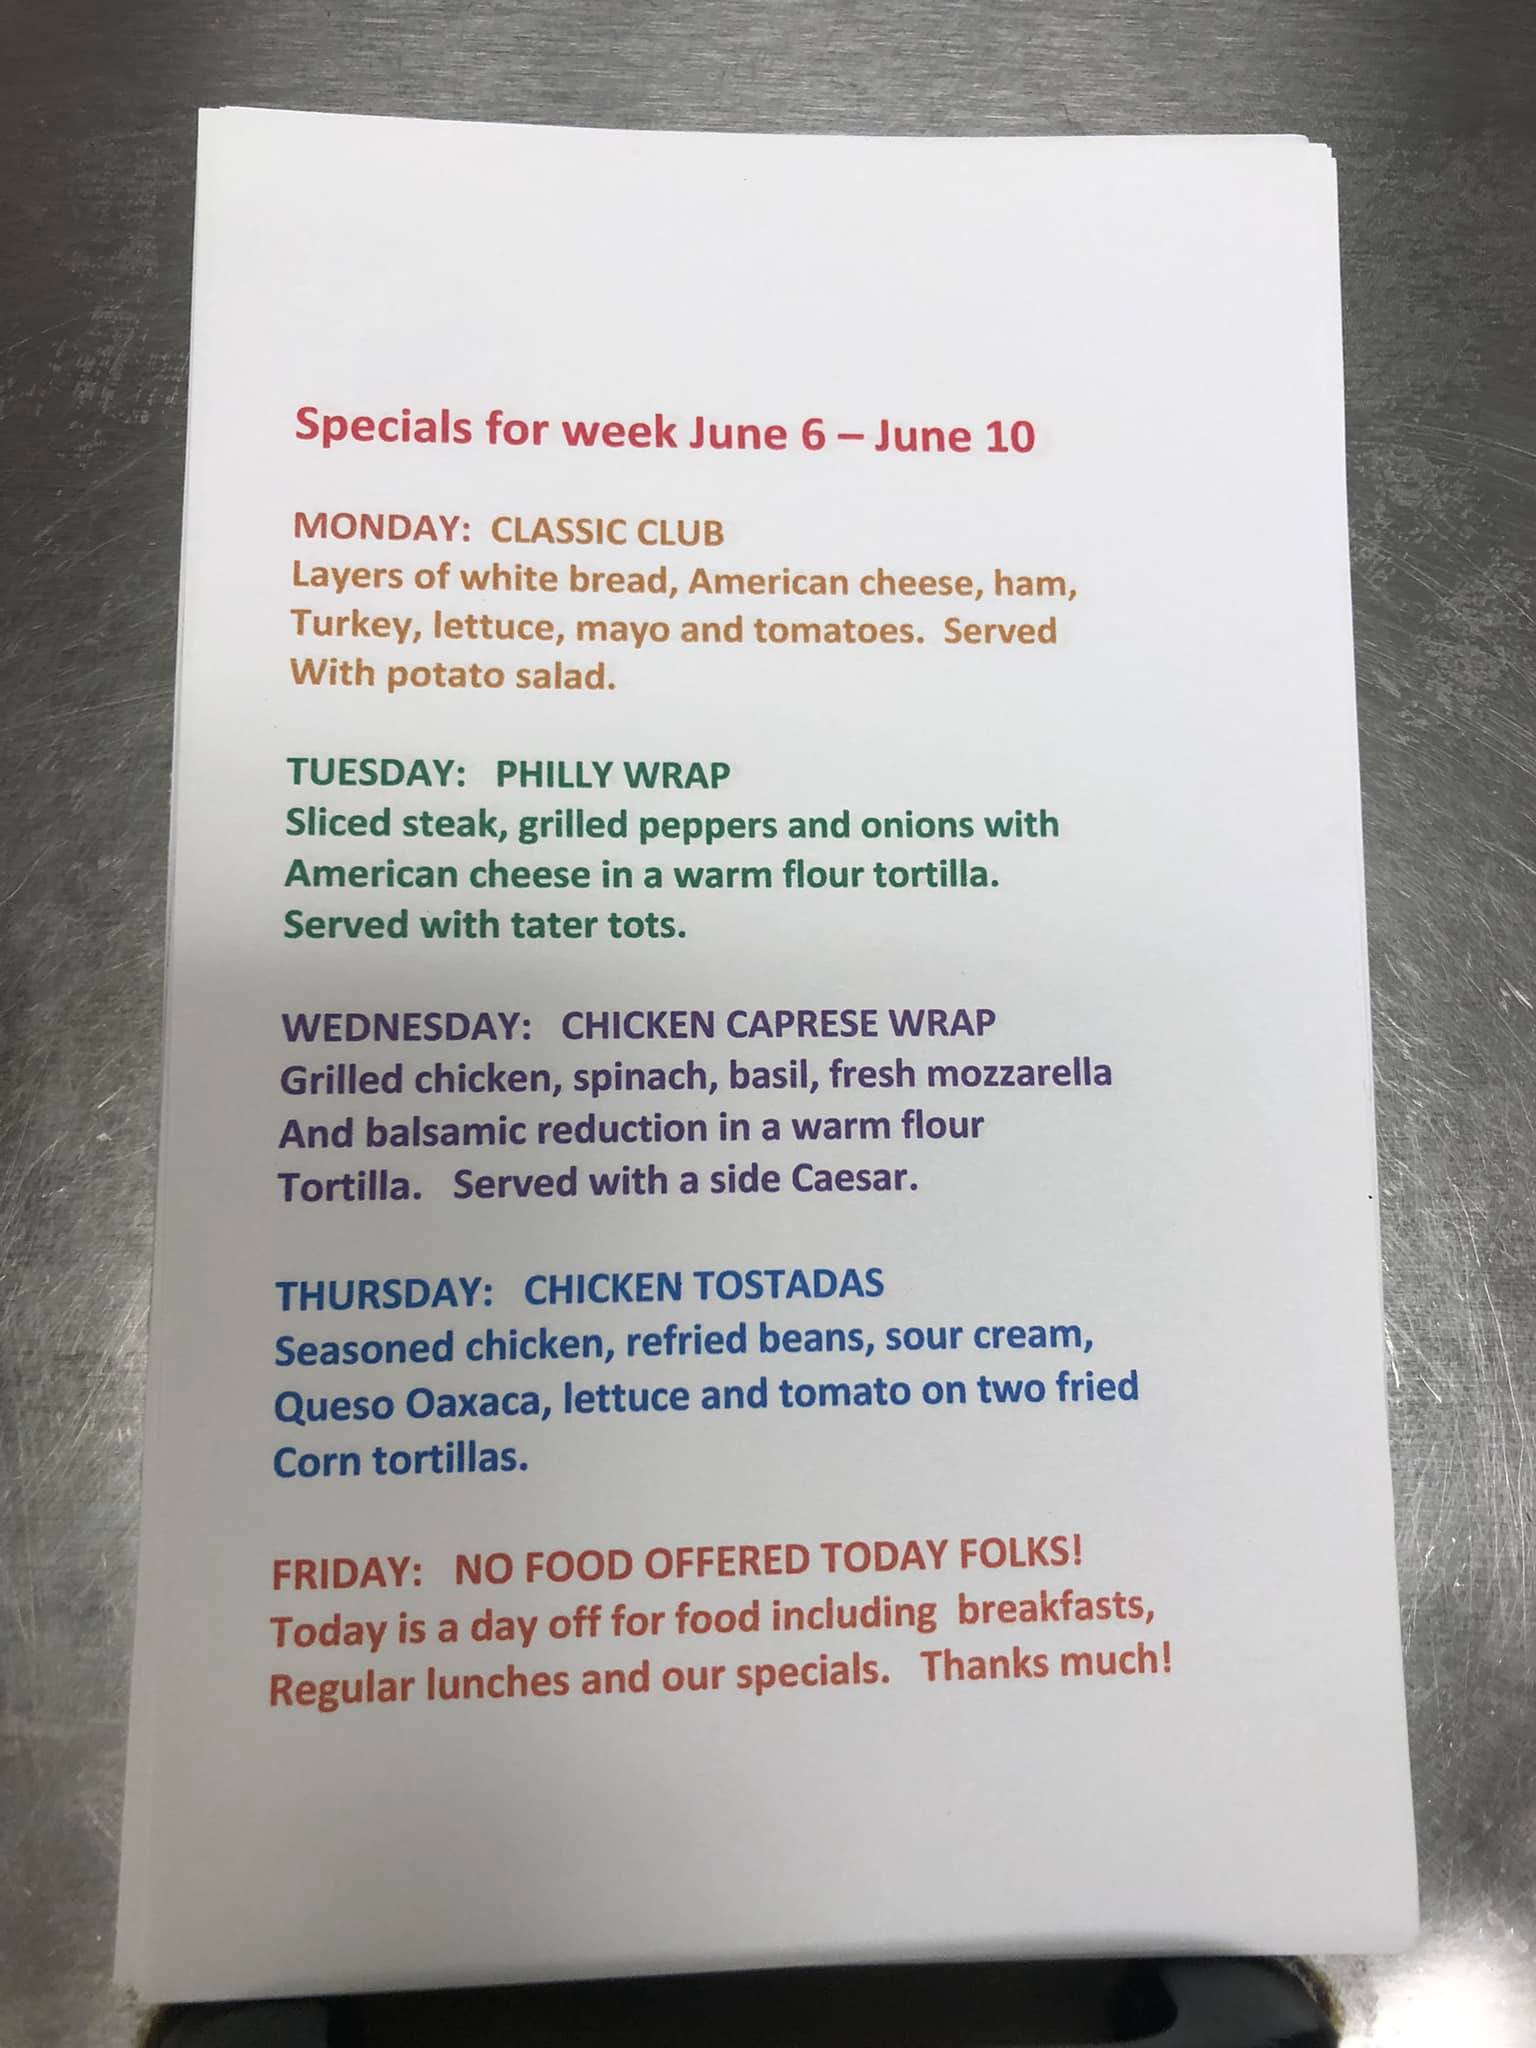 Specials for week June 6 – June 10
MONDAY: CLASSIC CLUB
Layers of white bread, American cheese, ham,
Turkey, lettuce, mayo and tomatoes. Served
With potato salad.
TUESDAY: PHILLY WRAP
Sliced steak, grilled peppers and onions with
American cheese in a warm flour tortilla.
Served with tater tots.
WEDNESDAY: CHICKEN CAPRESE WRAP
Grilled chicken, spinach, basil, fresh mozzarella
And balsamic reduction in a warm flour
Tortilla. Served with a side Caesar.
THURSDAY: CHICKEN TOSTADAS
Seasoned chicken, refried beans, sour cream,
Queso Oaxaca, lettuce and tomato on two fried
Corn tortillas.
FRIDAY: NO FOOD OFFERED TODAY FOLKS!
Today is a day off for food including breakfasts,
Regular lunches and our specials. Thanks much!